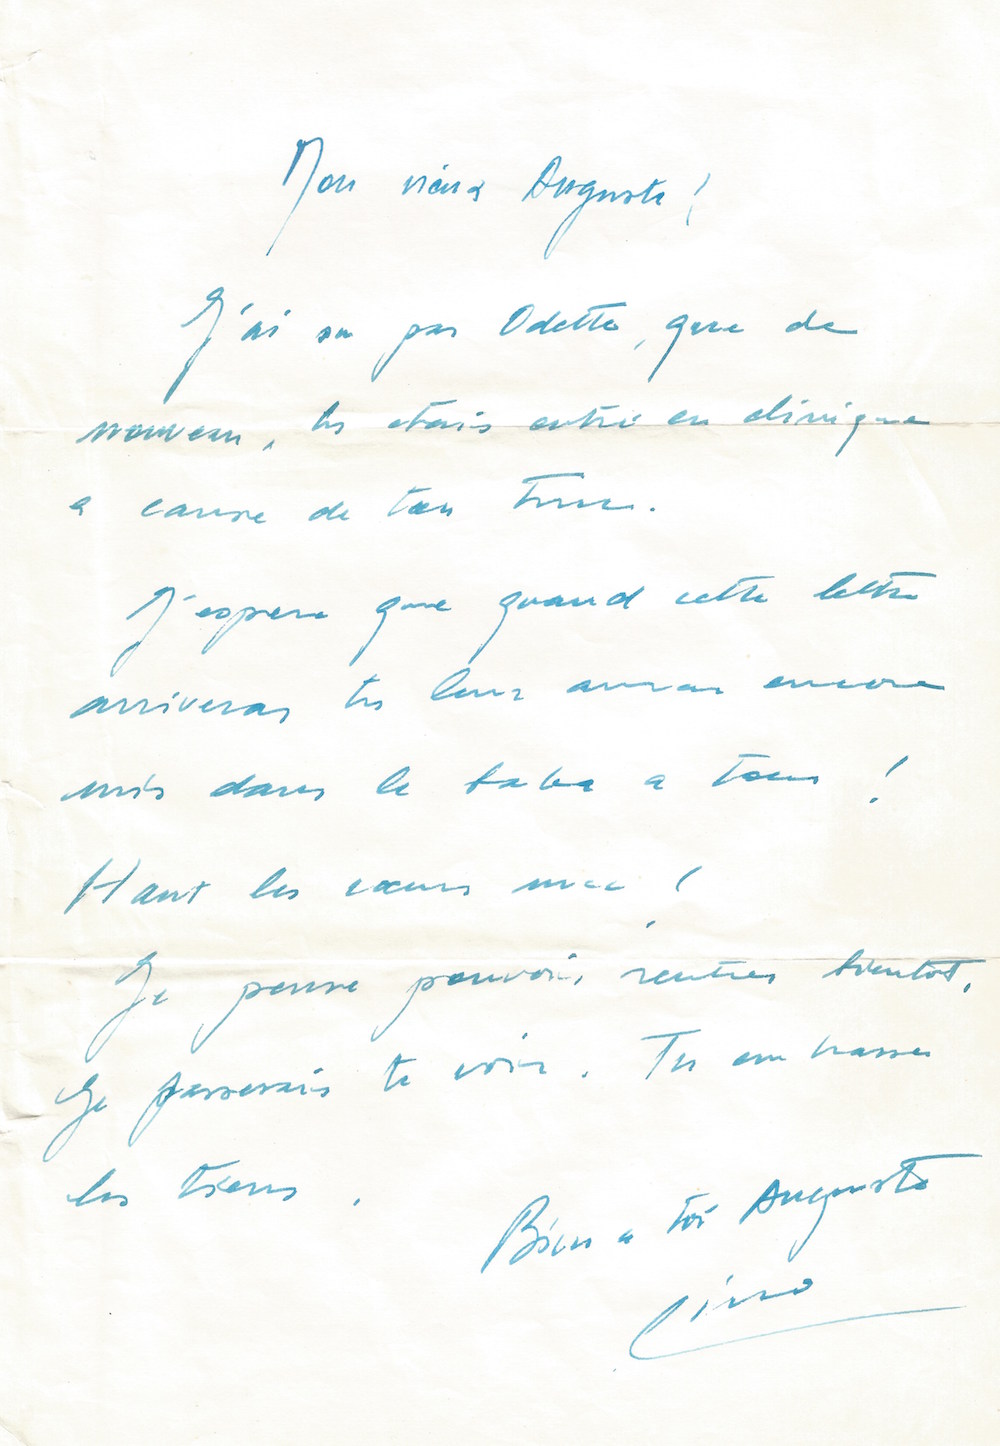 Mon vieux Auguste !
J'ai su par Odette, que de
nouveau, tu étais entré en clinique
a cause de ton truc.
J'espere que quand cette lettre
arriveras, tu leur auras encore
mis dans le baba a tous !
Haut les cœurs mec !
Je pense pouvoir rentrer bientot,
Je passerais te voir. Tu embrasses
les tiens.
Bien a toi Auguste